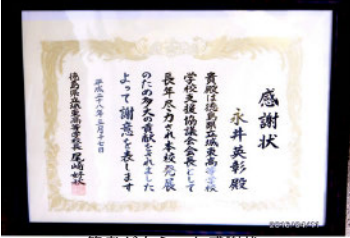 感謝状
永井英彰殿
貴殿は徳島県立城東高等学校
学校支援協議会会長として
長年尽力され本校発展
のため多大の貢献をされました
よって謝意を表します
平成二十八年三月十七日
徳島県立城東高等学校長 尾崎好秋